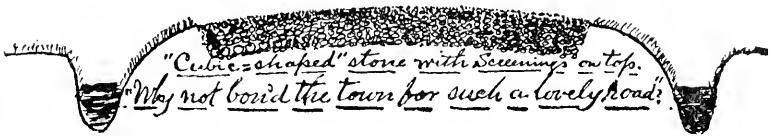 "Cubic=shaped" stone with Screenings on top.
"Why not bond the town for such a lovely road"?